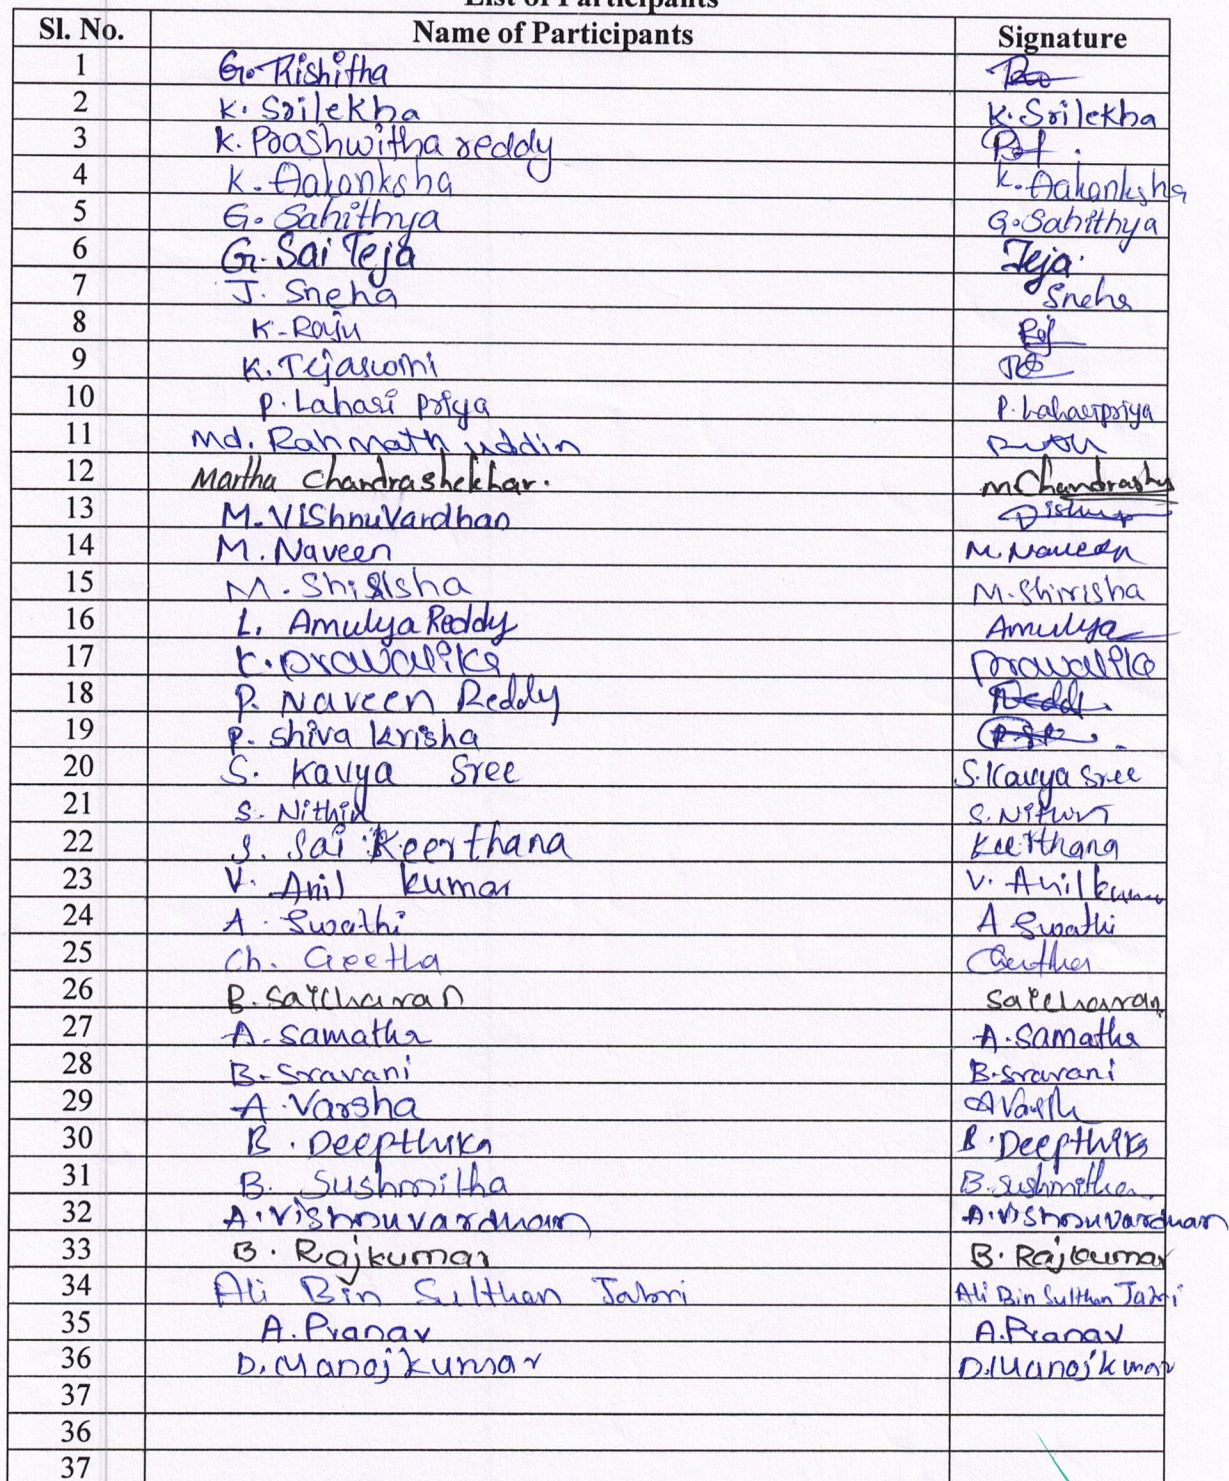 List of Participants
Sl. No. Name of Participants Signature
1 G. Rishitha
2 K. Srilekha K. Srilekha
3 K. Prashwitha reddy
4 K. Aakanksha K. Aakanksha
5 G. Sahithya G. Sahithya
6 G. Sai Teja Teja.
7 J. Sneha Sneha
8 K. Raju
9 K. Tejaswini
10 P. Lahari priya P. Laharipriya
11 Md. Rahmath uddin
12 Martha Chandrashekhar. M Chandrashe
13 M. Vishnuvardhan
14 M. Naveen M. Naveen
15 M. Shirisha M. Shirisha
16 L. Amulya Reddy Amulya
17 K. prawalika prawalika
18 P. Naveen Reddy Reddy
19 P. Shiva krisha
20 S. Kavya Sree S. Kavya Sree
21 S. Nithin S. Nithin
22 S. Sai Keerthana Keerthana
23 V. Anil kumar V. Anil kumar
24 A. Swathi A Swathi
25 Ch. Geetha Geetha
26 B. Saicharan Saicharan
27 A. Samatha A. Samatha
28 B. Sravani B. Sravani
29 A. Varsha
30 B. Deepthika B. Deepthika
31 B. Sushmitha B. Sushmitha
32 A. Vishnuvardhan A. Vishnuvardhan
33 B. Rajkumar B. Rajkumar
34 Ali Bin Sulthan Jabri Ali Bin Sulthan Jabri
35 A. Pranav A. Pranav
36 D. Manojkumar D. Manojkumar
37
36
37